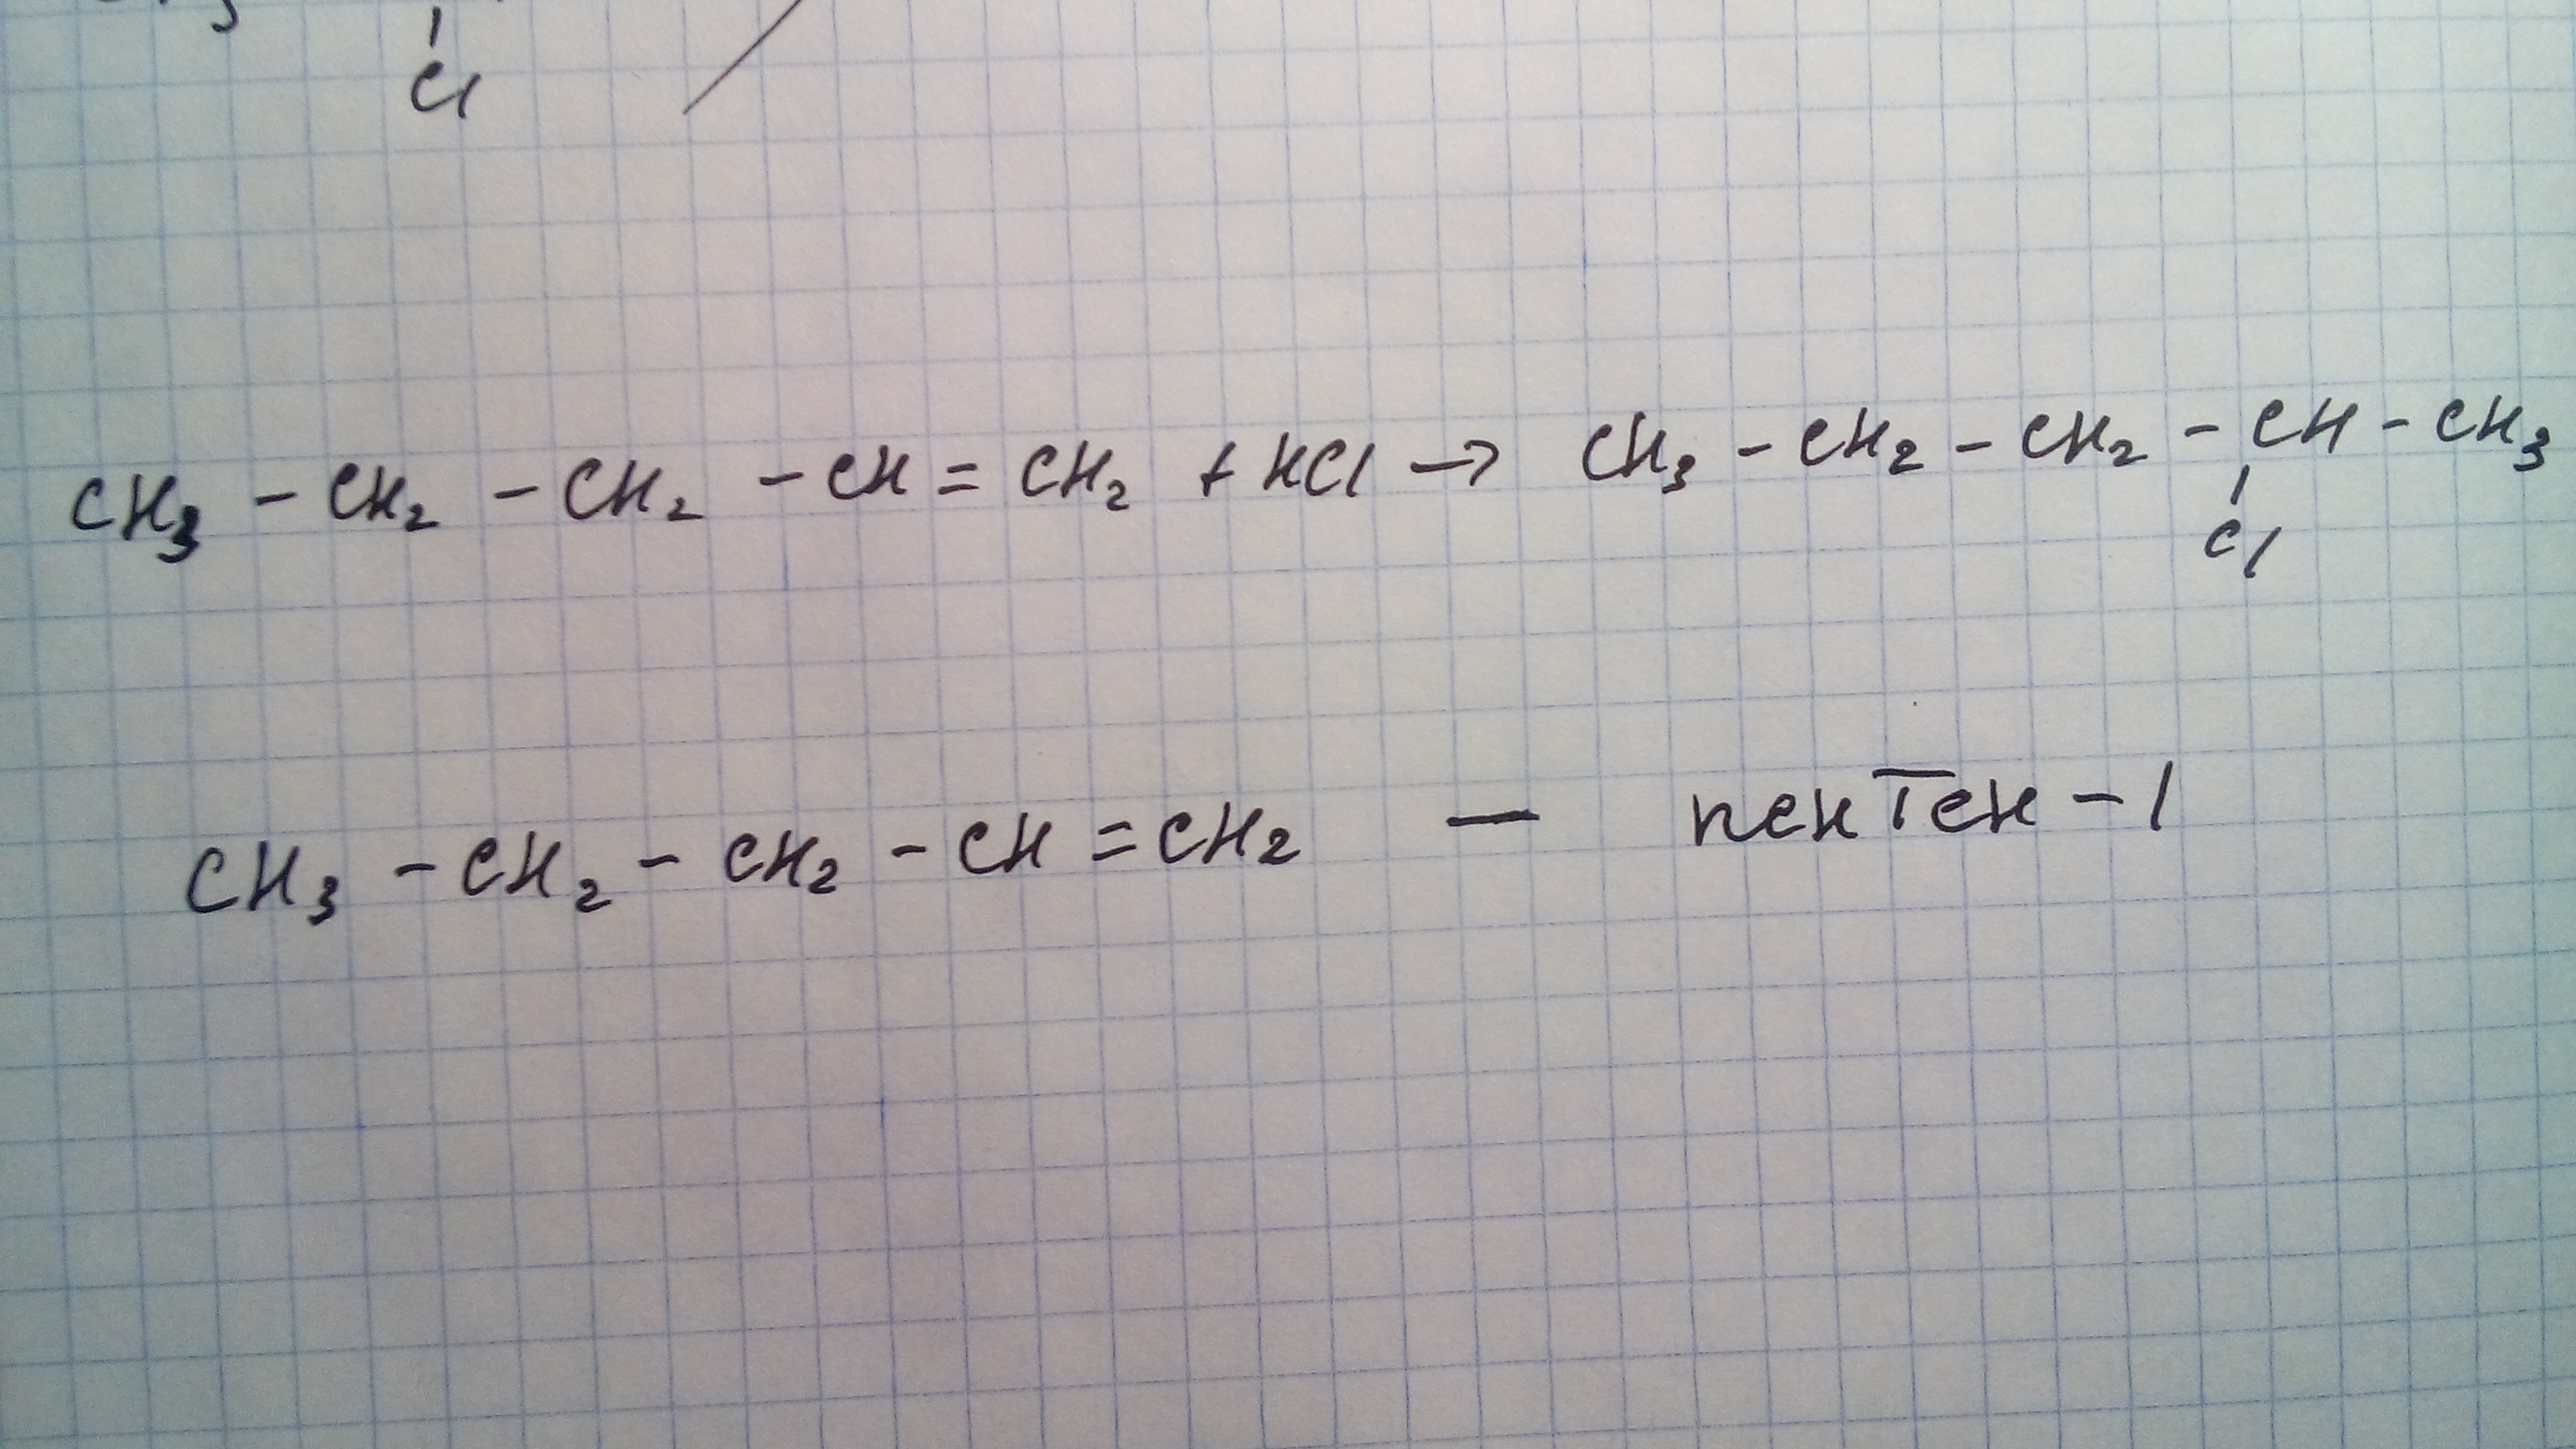 Cl
CH₃ – CH₂ – CH₂ – CH = CH₂ + HCl → CH₃ – CH₂ – CH₂ – CH – CH₃
Cl
CH₃ – CH₂ – CH₂ – CH = CH₂ — пентен – 1